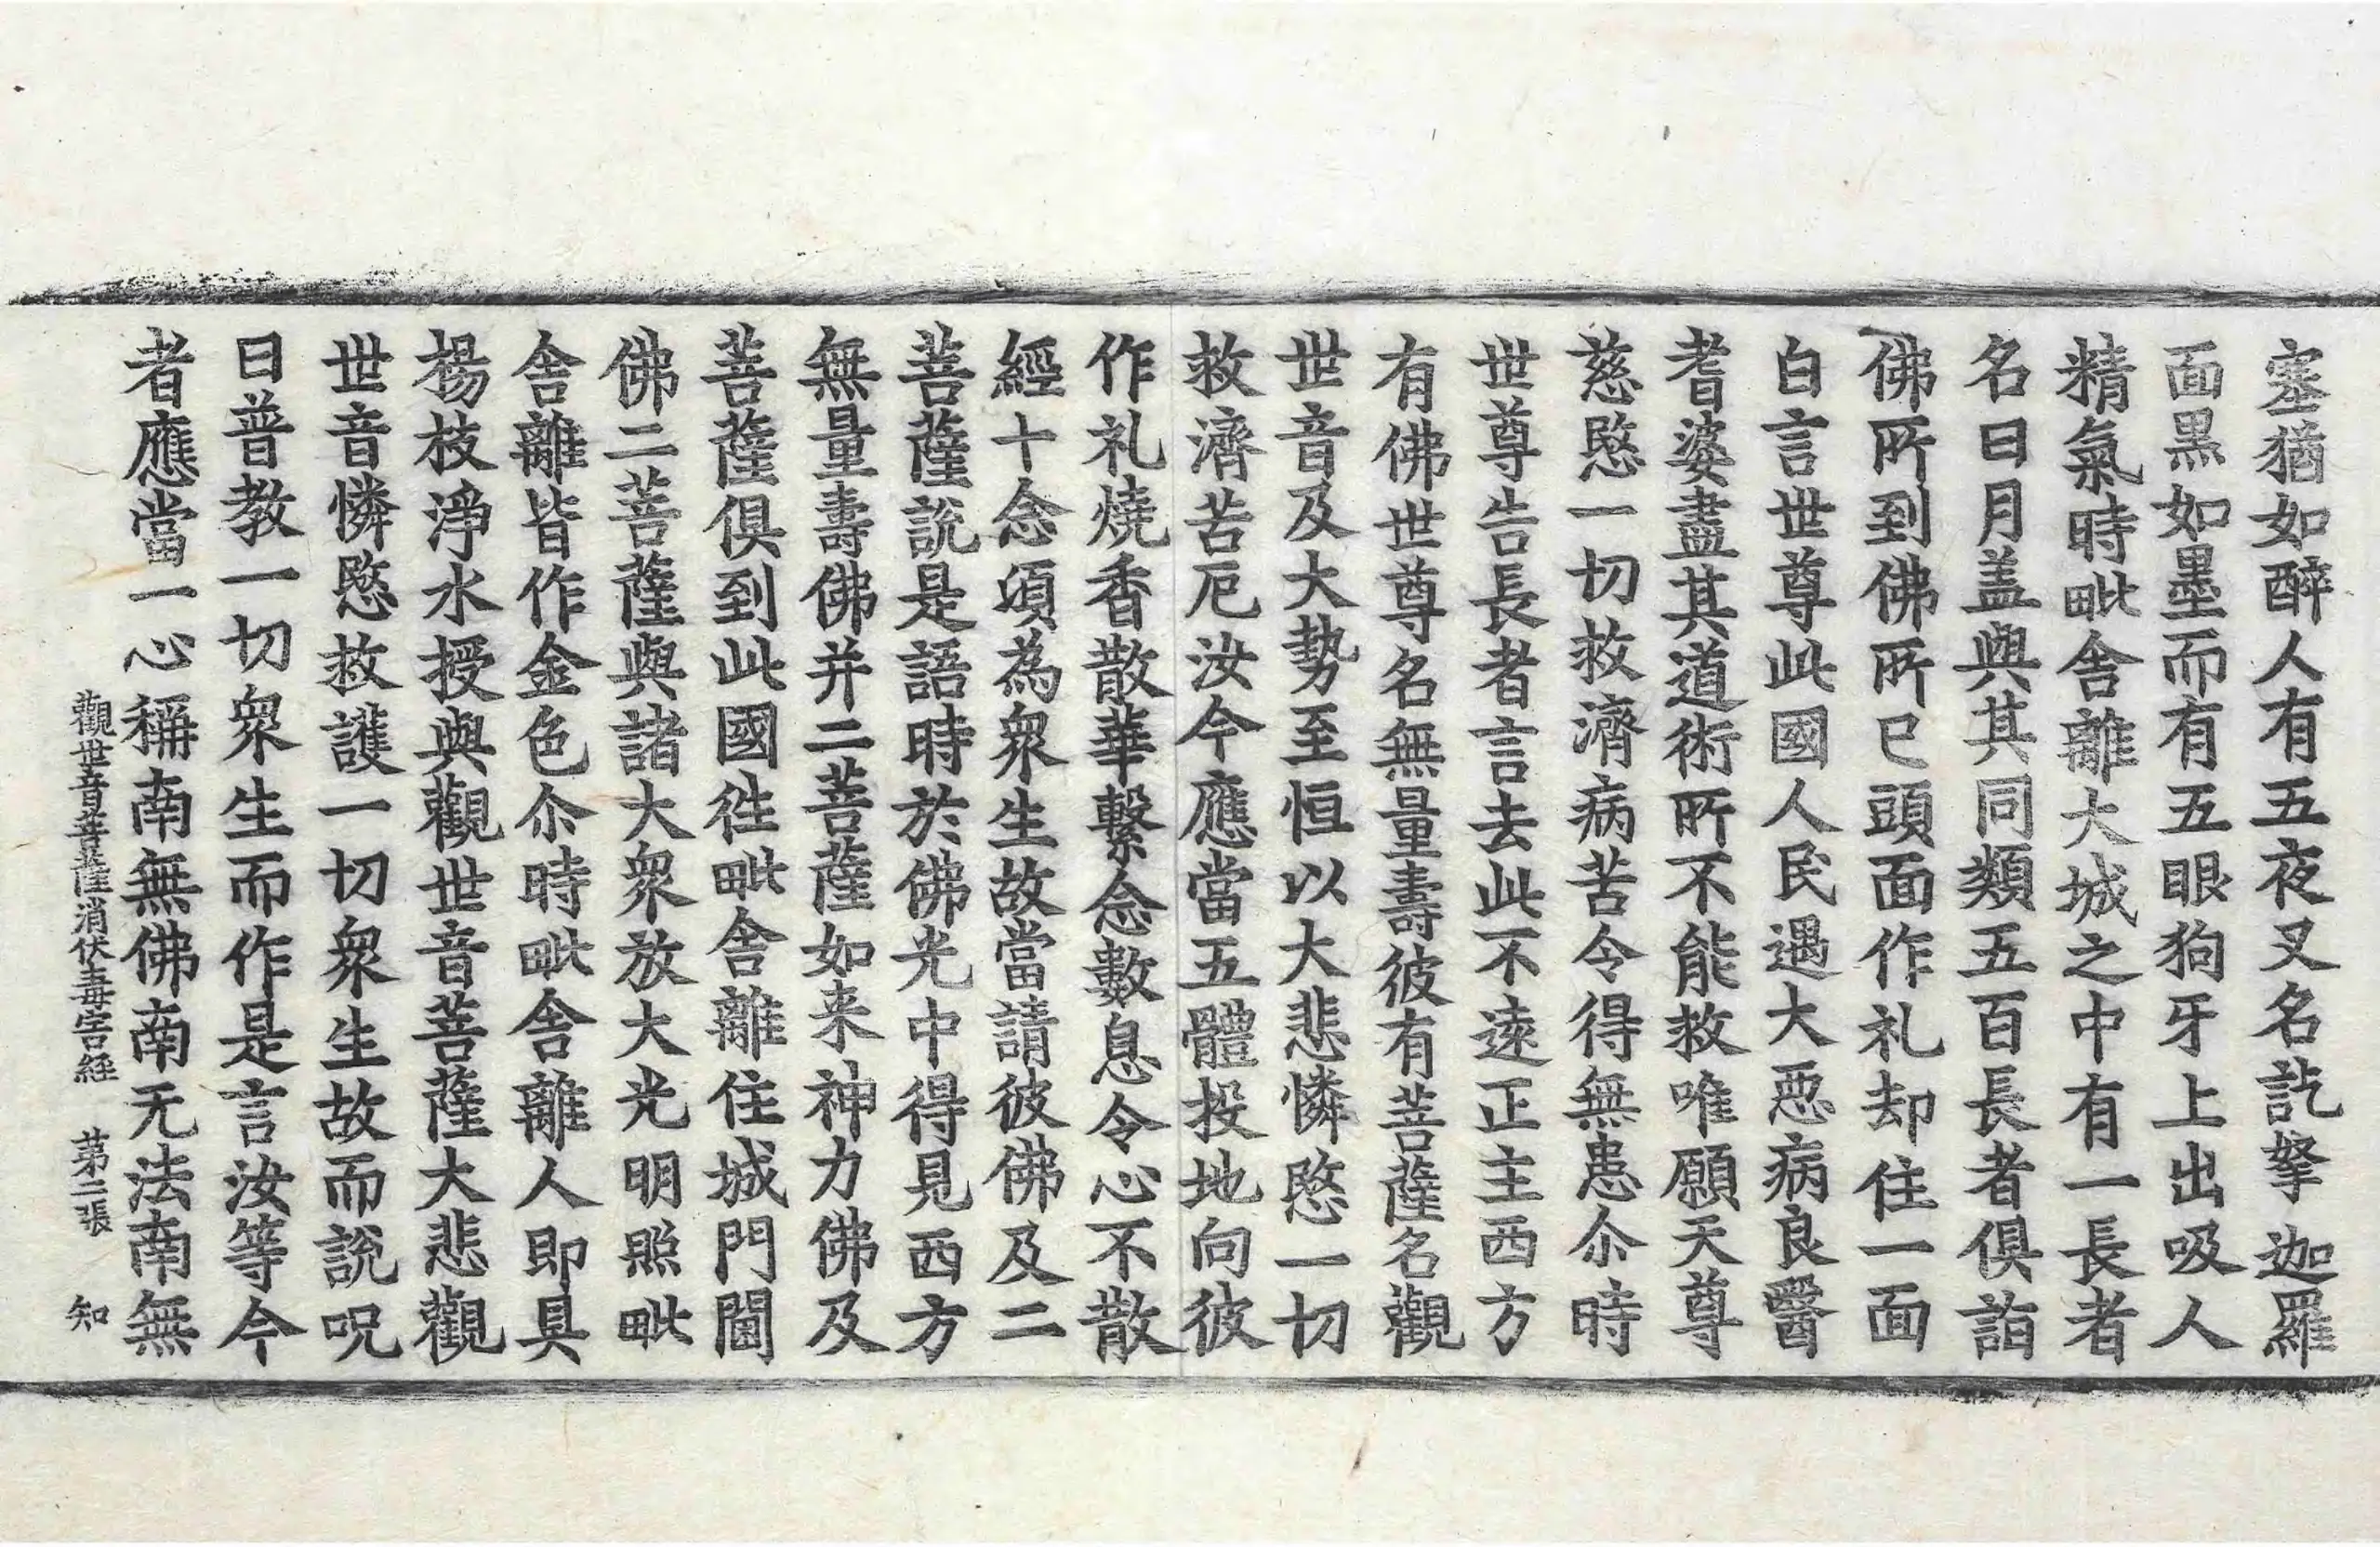 塞猶如醉人有五夜叉名訖拏迦羅
面黒如墨而有五眼狗牙上出吸人
精氣時毗舍離大城之中有一長者
名曰月盖與其同類五百長者俱詣
佛所到佛所已頭面作礼却住一面
白言世尊此國人民遇大惡病良醫
耆婆盡其道術所不能救唯願天尊
慈愍一切救濟病苦令得無患尒時
世尊告長者言去此不遠正主西方
有佛世尊名無量壽彼有菩薩名觀
世音及大勢至恒以大悲憐愍一切
救濟苦厄汝今應當五體投地向彼
作礼燒香散華繫念數息令心不散
經十念頃為衆生故當請彼佛及二
菩薩說是語時於佛光中得見西方
無量壽佛并二菩薩如来神力佛及
菩薩俱到此國徃毗舍離住城門閫
佛二菩薩與諸大衆放大光明照毗
舍離皆作金色尒時毗舍離人即具
楊枝淨水授與觀世音菩薩大悲觀
世音憐愍救護一切衆生故而說呪
曰普教一切衆生而作是言汝等今
者應當一心稱南無佛南无法南無
觀世音菩薩消伏毒害経 第二張 知